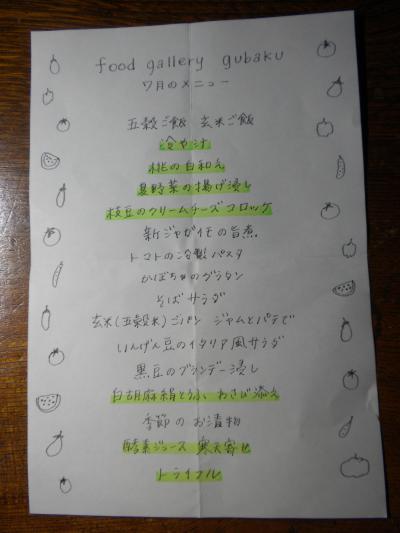 food gallery gubaku
7月のメニュー
五穀ご飯 玄米ご飯
冷や汁
桃の白和え
夏野菜の揚げ浸し
枝豆のクリームチーズコロッケ
新ジャガイモの旨煮
トマトの冷製パスタ
かぼちゃのグラタン
そばサラダ
玄米(五穀米)ごパン ジャムとパテで
いんげん豆のイタリア風サラダ
黒豆のブランデー浸し
白胡麻絹とうふ わさび添え
季節のお漬物
酵素ジュース寒天寄せ
トライフル